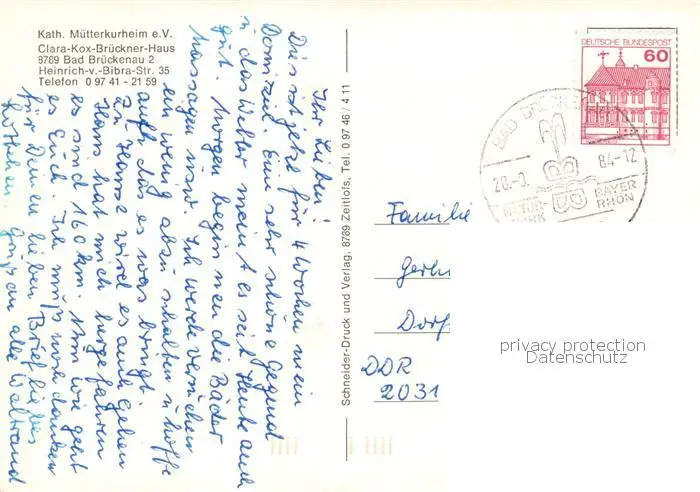 Kath. Mütterkurheim e.V.
Clara-Kox-Brückner-Haus
8789 Bad Brückenau 2
Heinrich-v.-Bibra-Str. 35
Telefon 0 97 41 - 21 59
Ihr Lieben!
Dies ist jetzt für 4 Wochen mein
Domizil. Eine sehr schöne Gegend
u das Wetter meint es seit Heute auch
gut. Morgen beginnen die Bäder
Massagen usw. Ich werde versuchen
ein wenig abzuschalten u hoffe
auch das es was bringt.
Zu Hause wird es auch gehen
Hans hat mich hergefahren
es sind 160 km. Nun wie geht
es Euch. Ich muß noch danken
für Deinen lieben Brief liebes
Gruß an alle Waltraud
Schneider-Druck und Verlag, 8789 Zeitlofs, Tel. 0 97 46 / 4 11
DEUTSCHE BUNDESPOST
60
BAD BRÜCKENAU
28.-9. 84-12
NATUR-
PARK
BAYER
RHÖN
Familie
Gerlin
Dorf
DDR
2031
privacy protection
Datenschutz